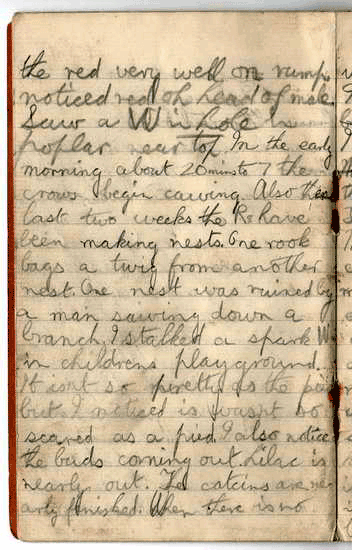 the red very well on rump.
noticed red of head of male.
Saw a W in hole in
poplar near top. In the early
morning about 20 mins to 7 the
crows begin cawing. Also the
last two weeks the R. have
been making nests. One rook
bags a twig from another
nest. One nest was ruined by
a man sawing down a
branch. I stalked a spark W
in childrens playground.
It isnt so pretty as the pied
but I noticed is wasnt so
scared as a pied. I also notice
the buds coming out. Lilac is
nearly out. The catcins are ne
arly finished. When there is no